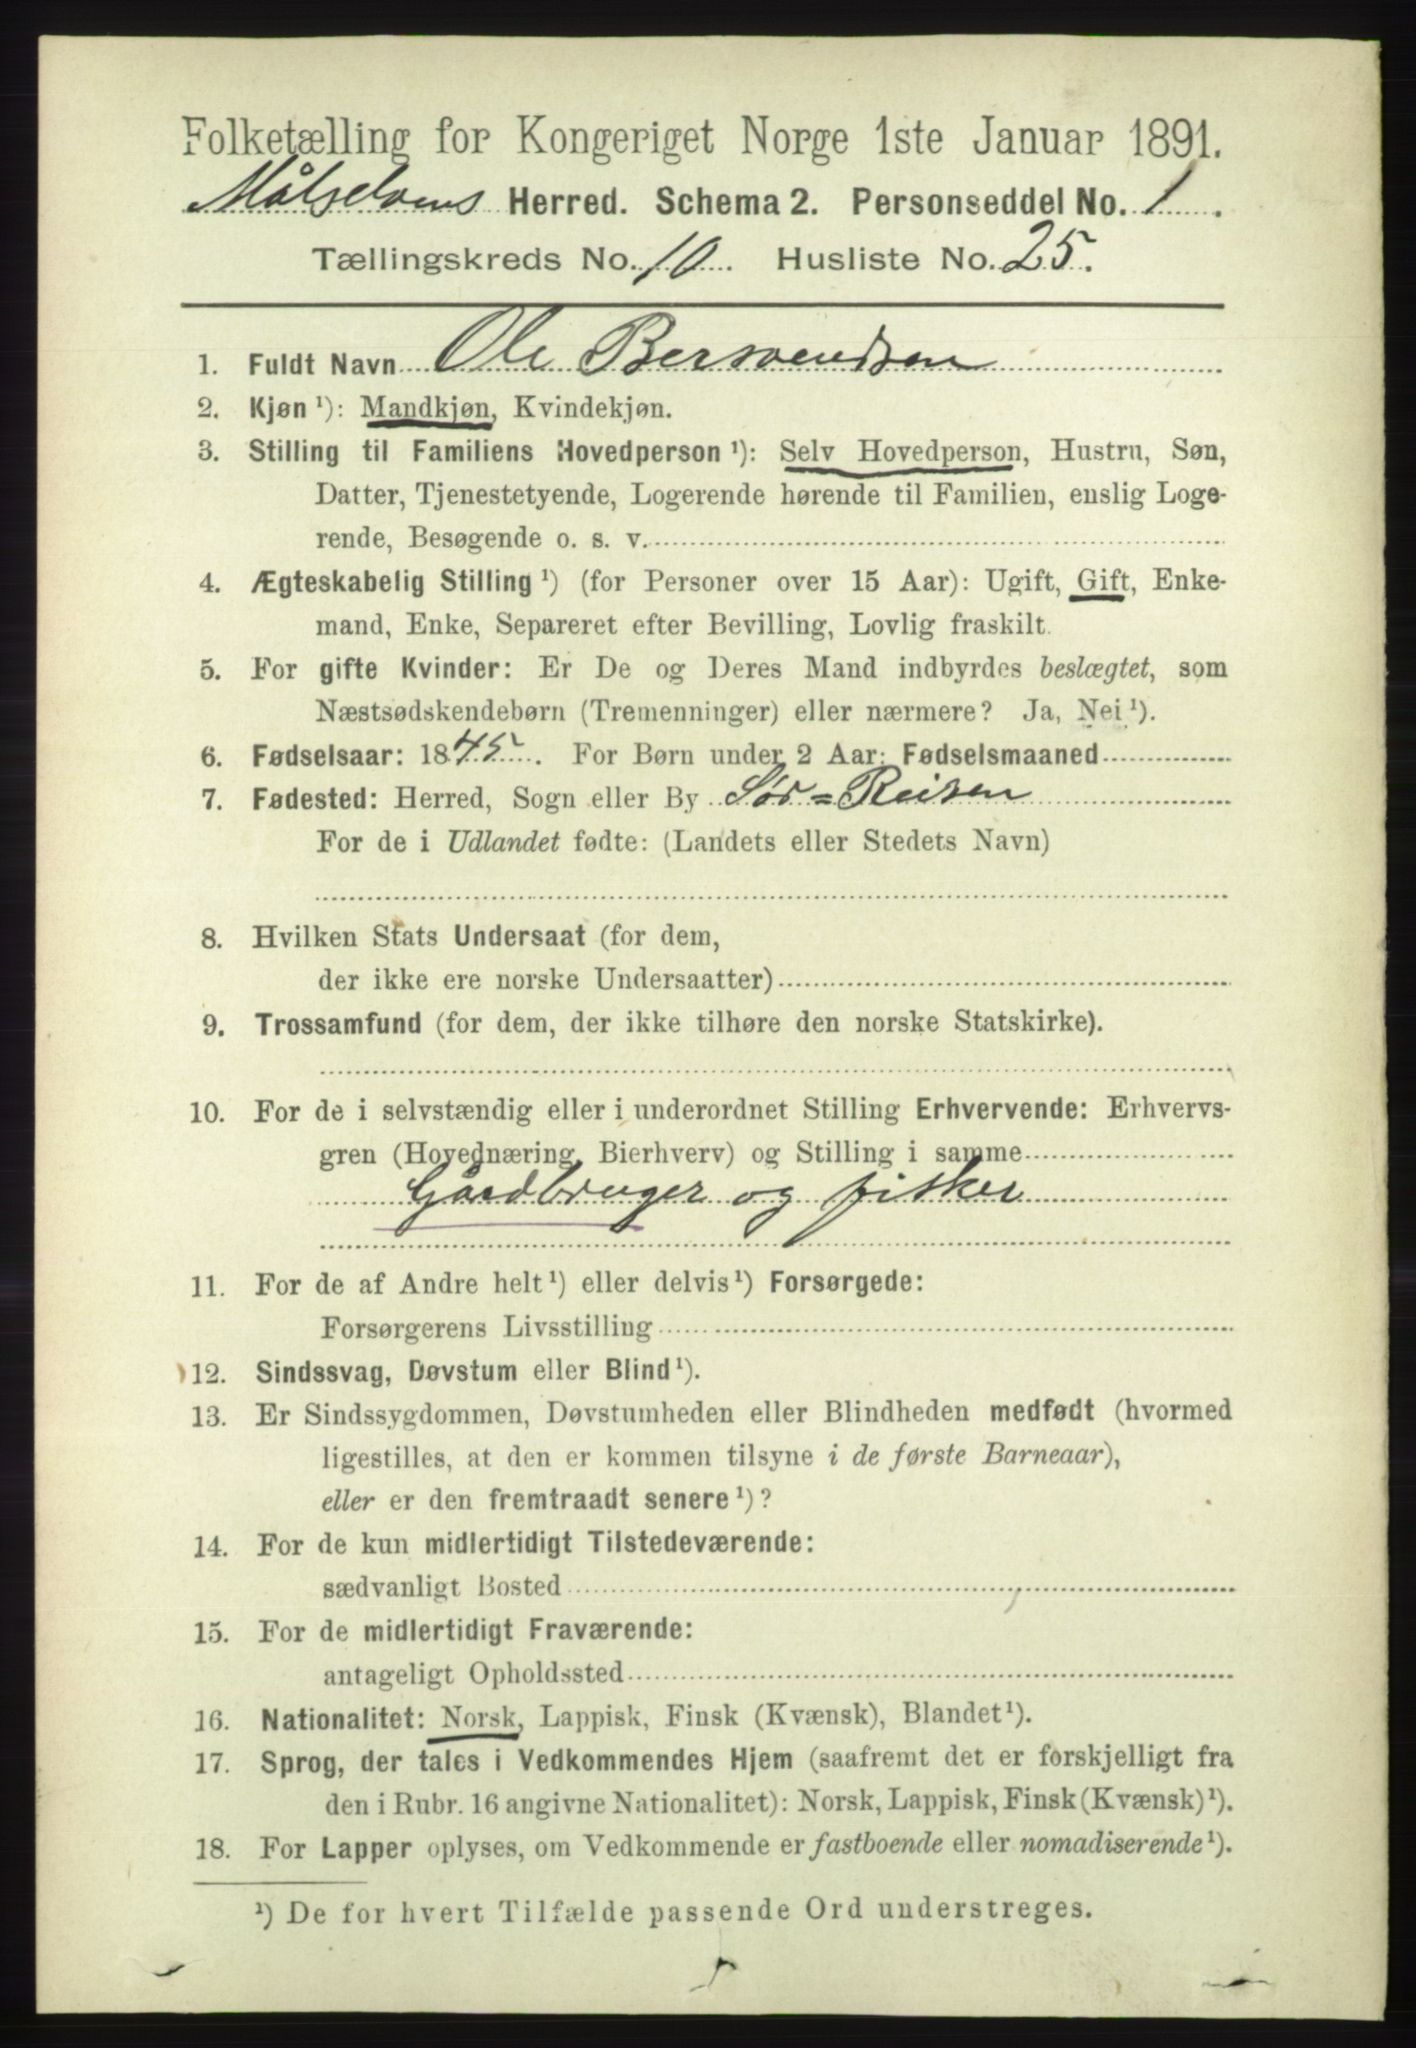 Folketælling for Kongeriget Norge 1ste Januar 1891.
Målselvens Herred. Schema 2. Personseddel No. 1.
Tællingskreds No. 10. Husliste No. 25.
1. Fuldt Navn Ole Bersvendsen
2. Kjøn ¹): Mandkjøn, Kvindekjøn.
3. Stilling til Familiens Hovedperson ¹): Selv Hovedperson, Hustru, Søn,
Datter, Tjenestetyende, Logerende hørende til Familien, enslig Loge-
rende, Besøgende o. s. v.
4. Ægteskabelig Stilling ¹) (for Personer over 15 Aar): Ugift, Gift, Enke-
mand, Enke, Separeret efter Bevilling, Lovlig fraskilt.
5. For gifte Kvinder: Er De og Deres Mand indbyrdes beslægtet, som
Næstsødskendebørn (Tremenninger) eller nærmere? Ja, Nei ¹).
6. Fødselsaar: 1845. For Børn under 2 Aar: Fødselsmaaned
7. Fødested: Herred, Sogn eller By Sør=Reisen
For de i Udlandet fødte: (Landets eller Stedets Navn)
8. Hvilken Stats Undersaat (for dem,
der ikke ere norske Undersaatter)
9. Trossamfund (for dem, der ikke tilhøre den norske Statskirke).
10. For de i selvstændig eller i underordnet Stilling Erhvervende: Erhvervs-
gren (Hovednæring, Bierhverv) og Stilling i samme
Gårdbruger og fisker
11. For de af Andre helt ¹) eller delvis ¹) Forsørgede:
Forsørgerens Livsstilling
12. Sindssvag, Døvstum eller Blind ¹).
13. Er Sindssygdommen, Døvstumheden eller Blindheden medfødt (hvormed
ligestilles, at den er kommen tilsyne i de første Barneaar),
eller er den fremtraadt senere ¹)?
14. For de kun midlertidigt Tilstedeværende:
sædvanligt Bosted
15. For de midlertidigt Fraværende:
antageligt Opholdssted
16. Nationalitet: Norsk, Lappisk, Finsk (Kvænsk), Blandet ¹).
17. Sprog, der tales i Vedkommendes Hjem (saafremt det er forskjelligt fra
den i Rubr. 16 angivne Nationalitet): Norsk, Lappisk, Finsk (Kvænsk) ¹).
18. For Lapper oplyses, om Vedkommende er fastboende eller nomadiserende ¹).
¹) De for hvert Tilfælde passende Ord understreges.